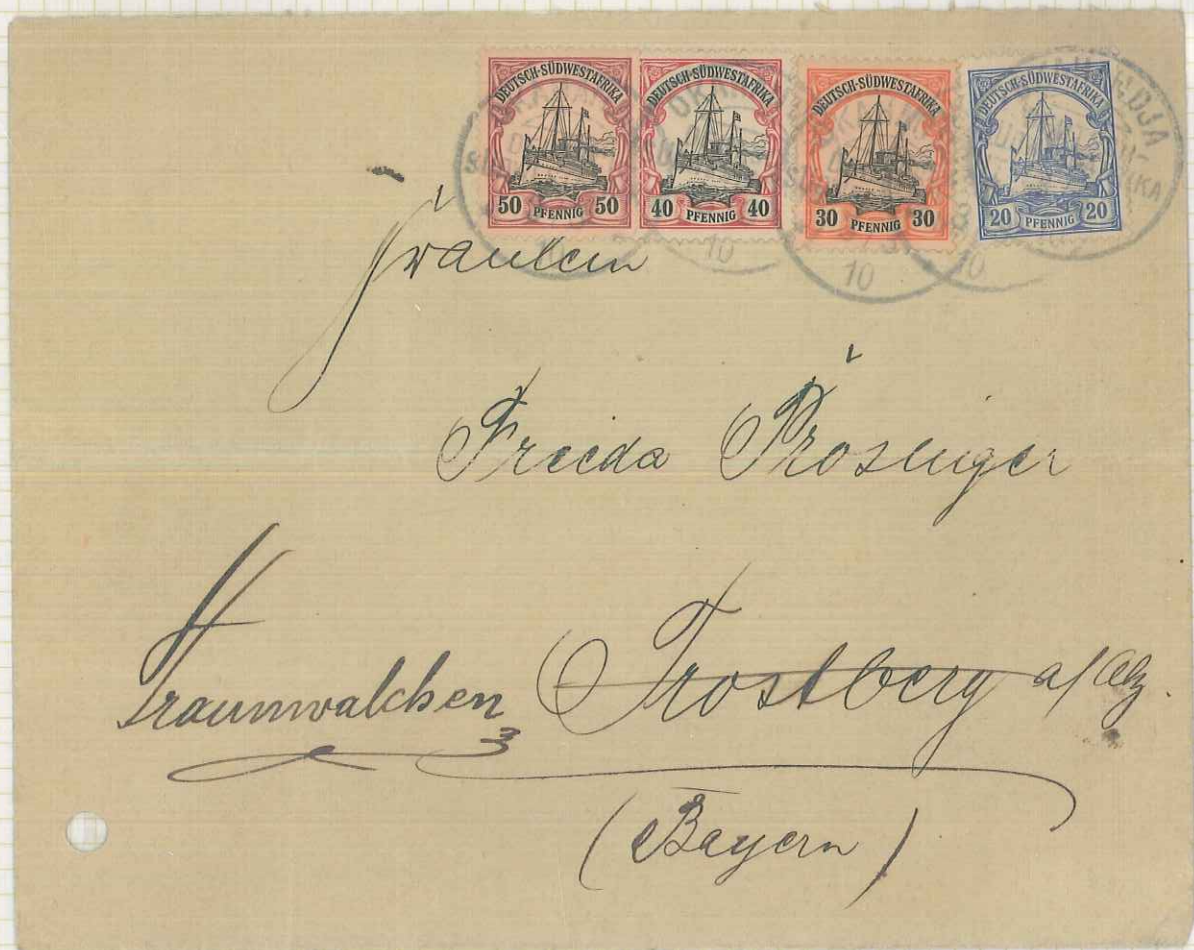 DEUTSCH-SÜDWESTAFRIKA
50 PFENNIG 50
DEUTSCH-SÜDWESTAFRIKA
40 PFENNIG 40
DEUTSCH-SÜDWESTAFRIKA
30 PFENNIG 30
DEUTSCH-SÜDWESTAFRIKA
20 PFENNIG 20
10
10
10
Fräulein
Frieda Prösinger
Traunwalchen Trostberg a/Alz.
(Bayern)